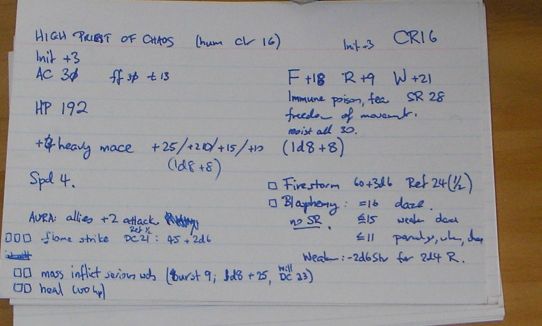 HIGH PRIEST OF CHAOS (hum clr 16) Init +3 CR16
Init +3
AC 30 ff 30 t 13
F +18 R +9 W +21
Immune poison, fea SR 28
freedom of movement.
HP 192
resist all 30.
heavy mace +25/+20/+15/+10 (1d8+8)
(1d8+8)
Spd 4.
□ Firestorm 60+3d6 Ref 24 (½)
□ Blasphemy: =16 daze.
no SR. ≤15 weak daze
≤11 paralys,
Weaken: -2d6 Str for 2d4 R.
AURA: allies +2 attack
Ref ½
□□□ flame strike DC21: 45 + 2d6
□□ mass inflict serious wds (burst 9; 3d8 + 25, Will DC 23)
□□ heal (100 hp)